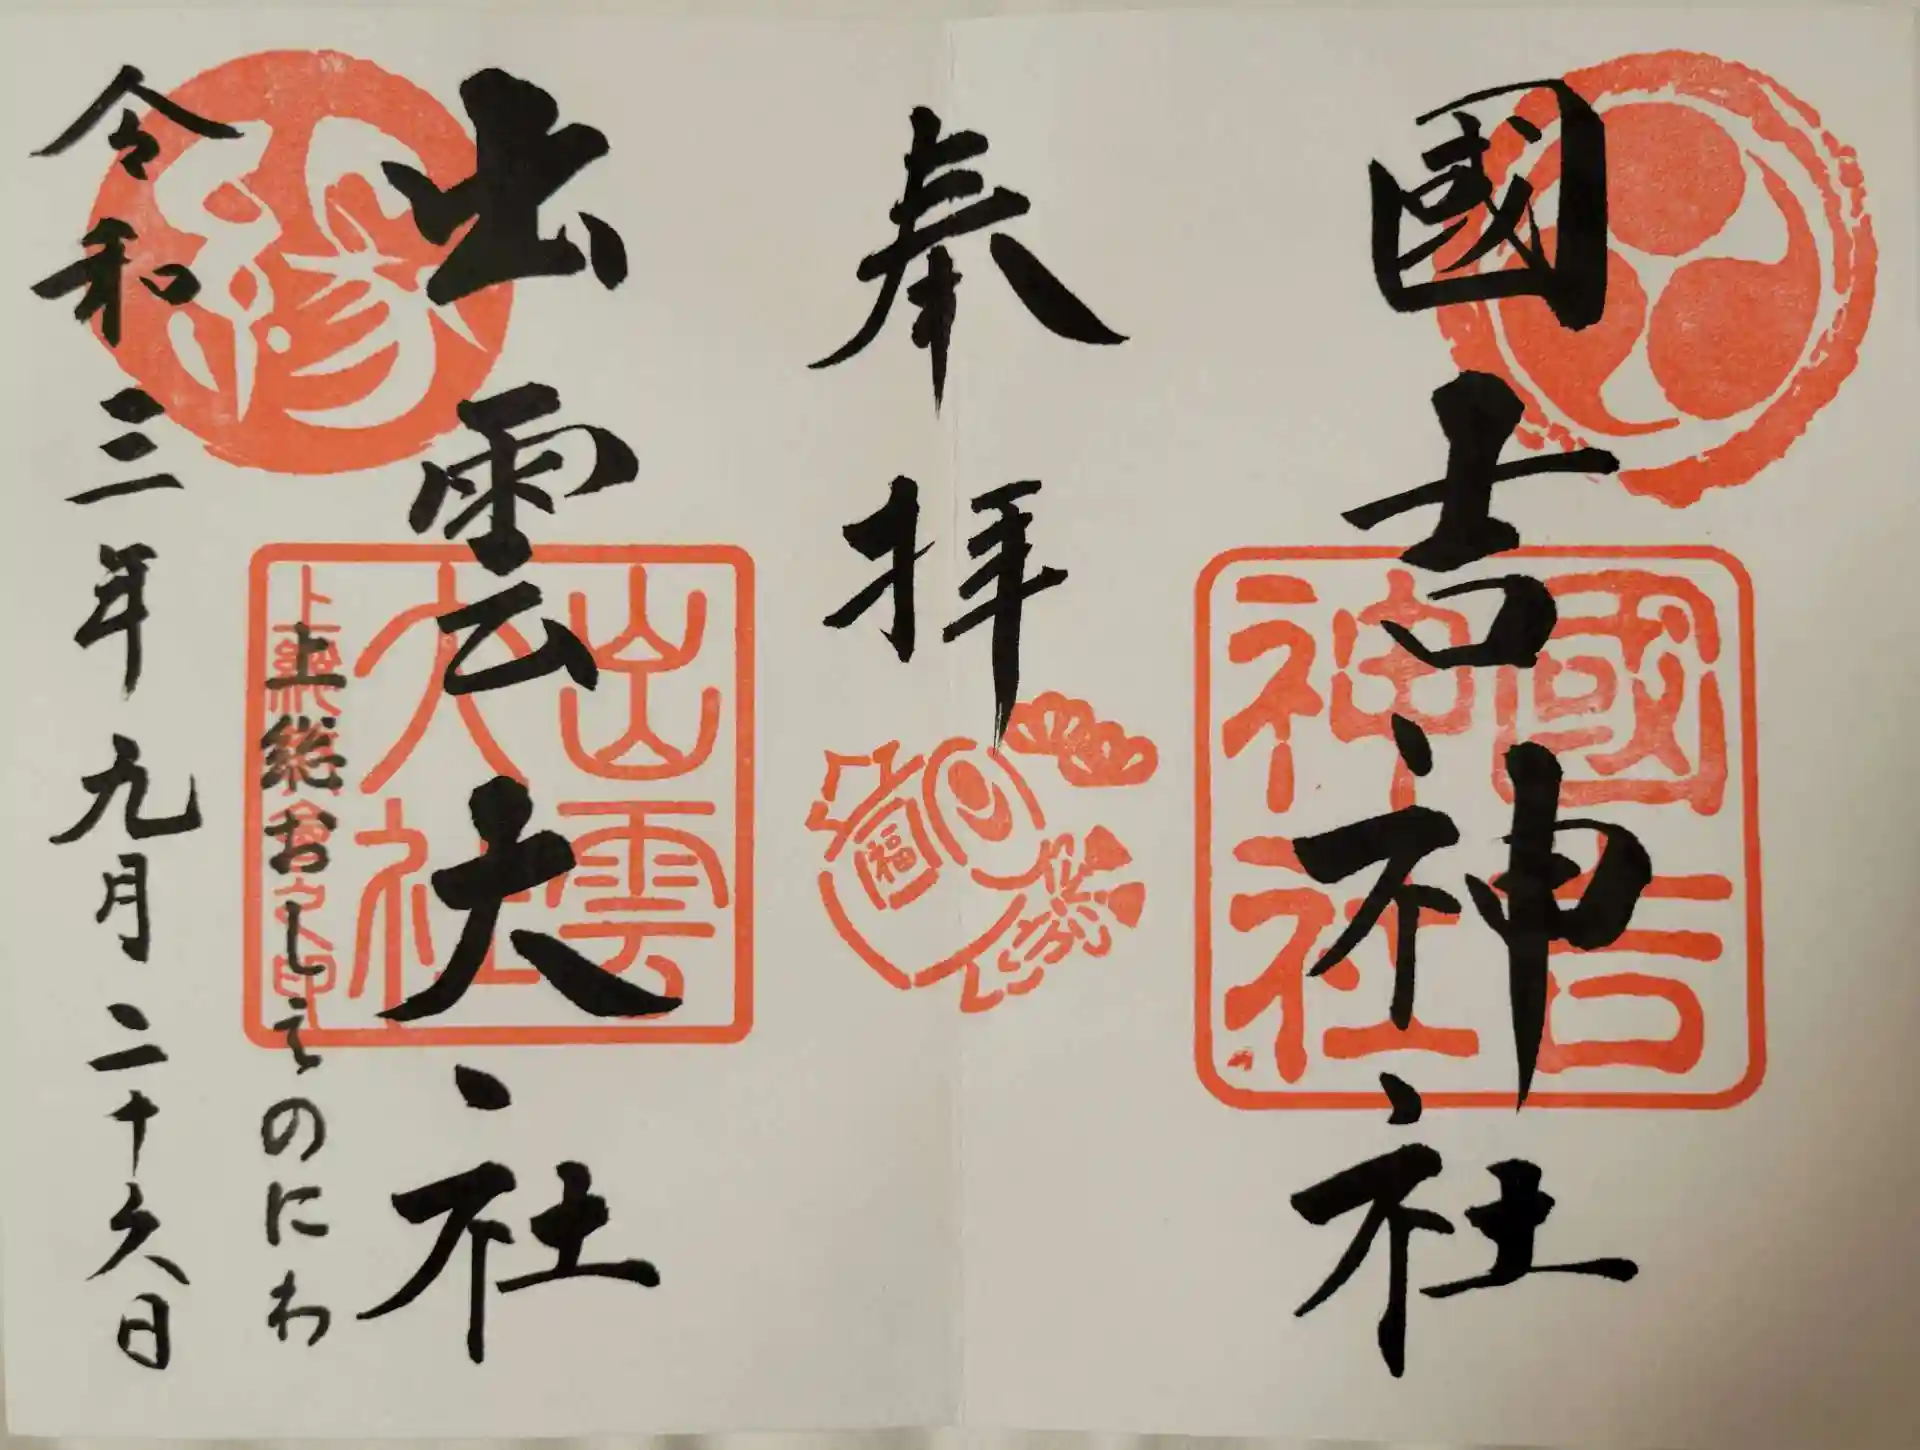 國吉神社
國吉
神社
奉拝
福
出雲大社
出雲
大社
上総おしえのにわ
令和三年九月二十六日